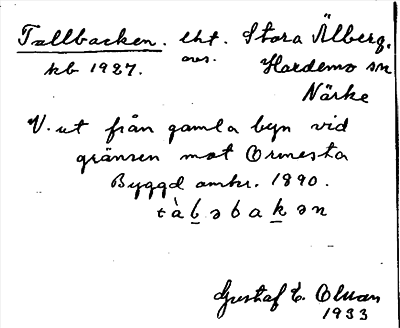 Tallbacken. lht. Stora Älberg,
kb 1927. avs. Hardemo sn
Närke
V. ut från gamla byn vid
gränsen mot Ormesta
Byggd omkr. 1890.
tàḇəbaḵən
Gustaf E. Olsson
1933